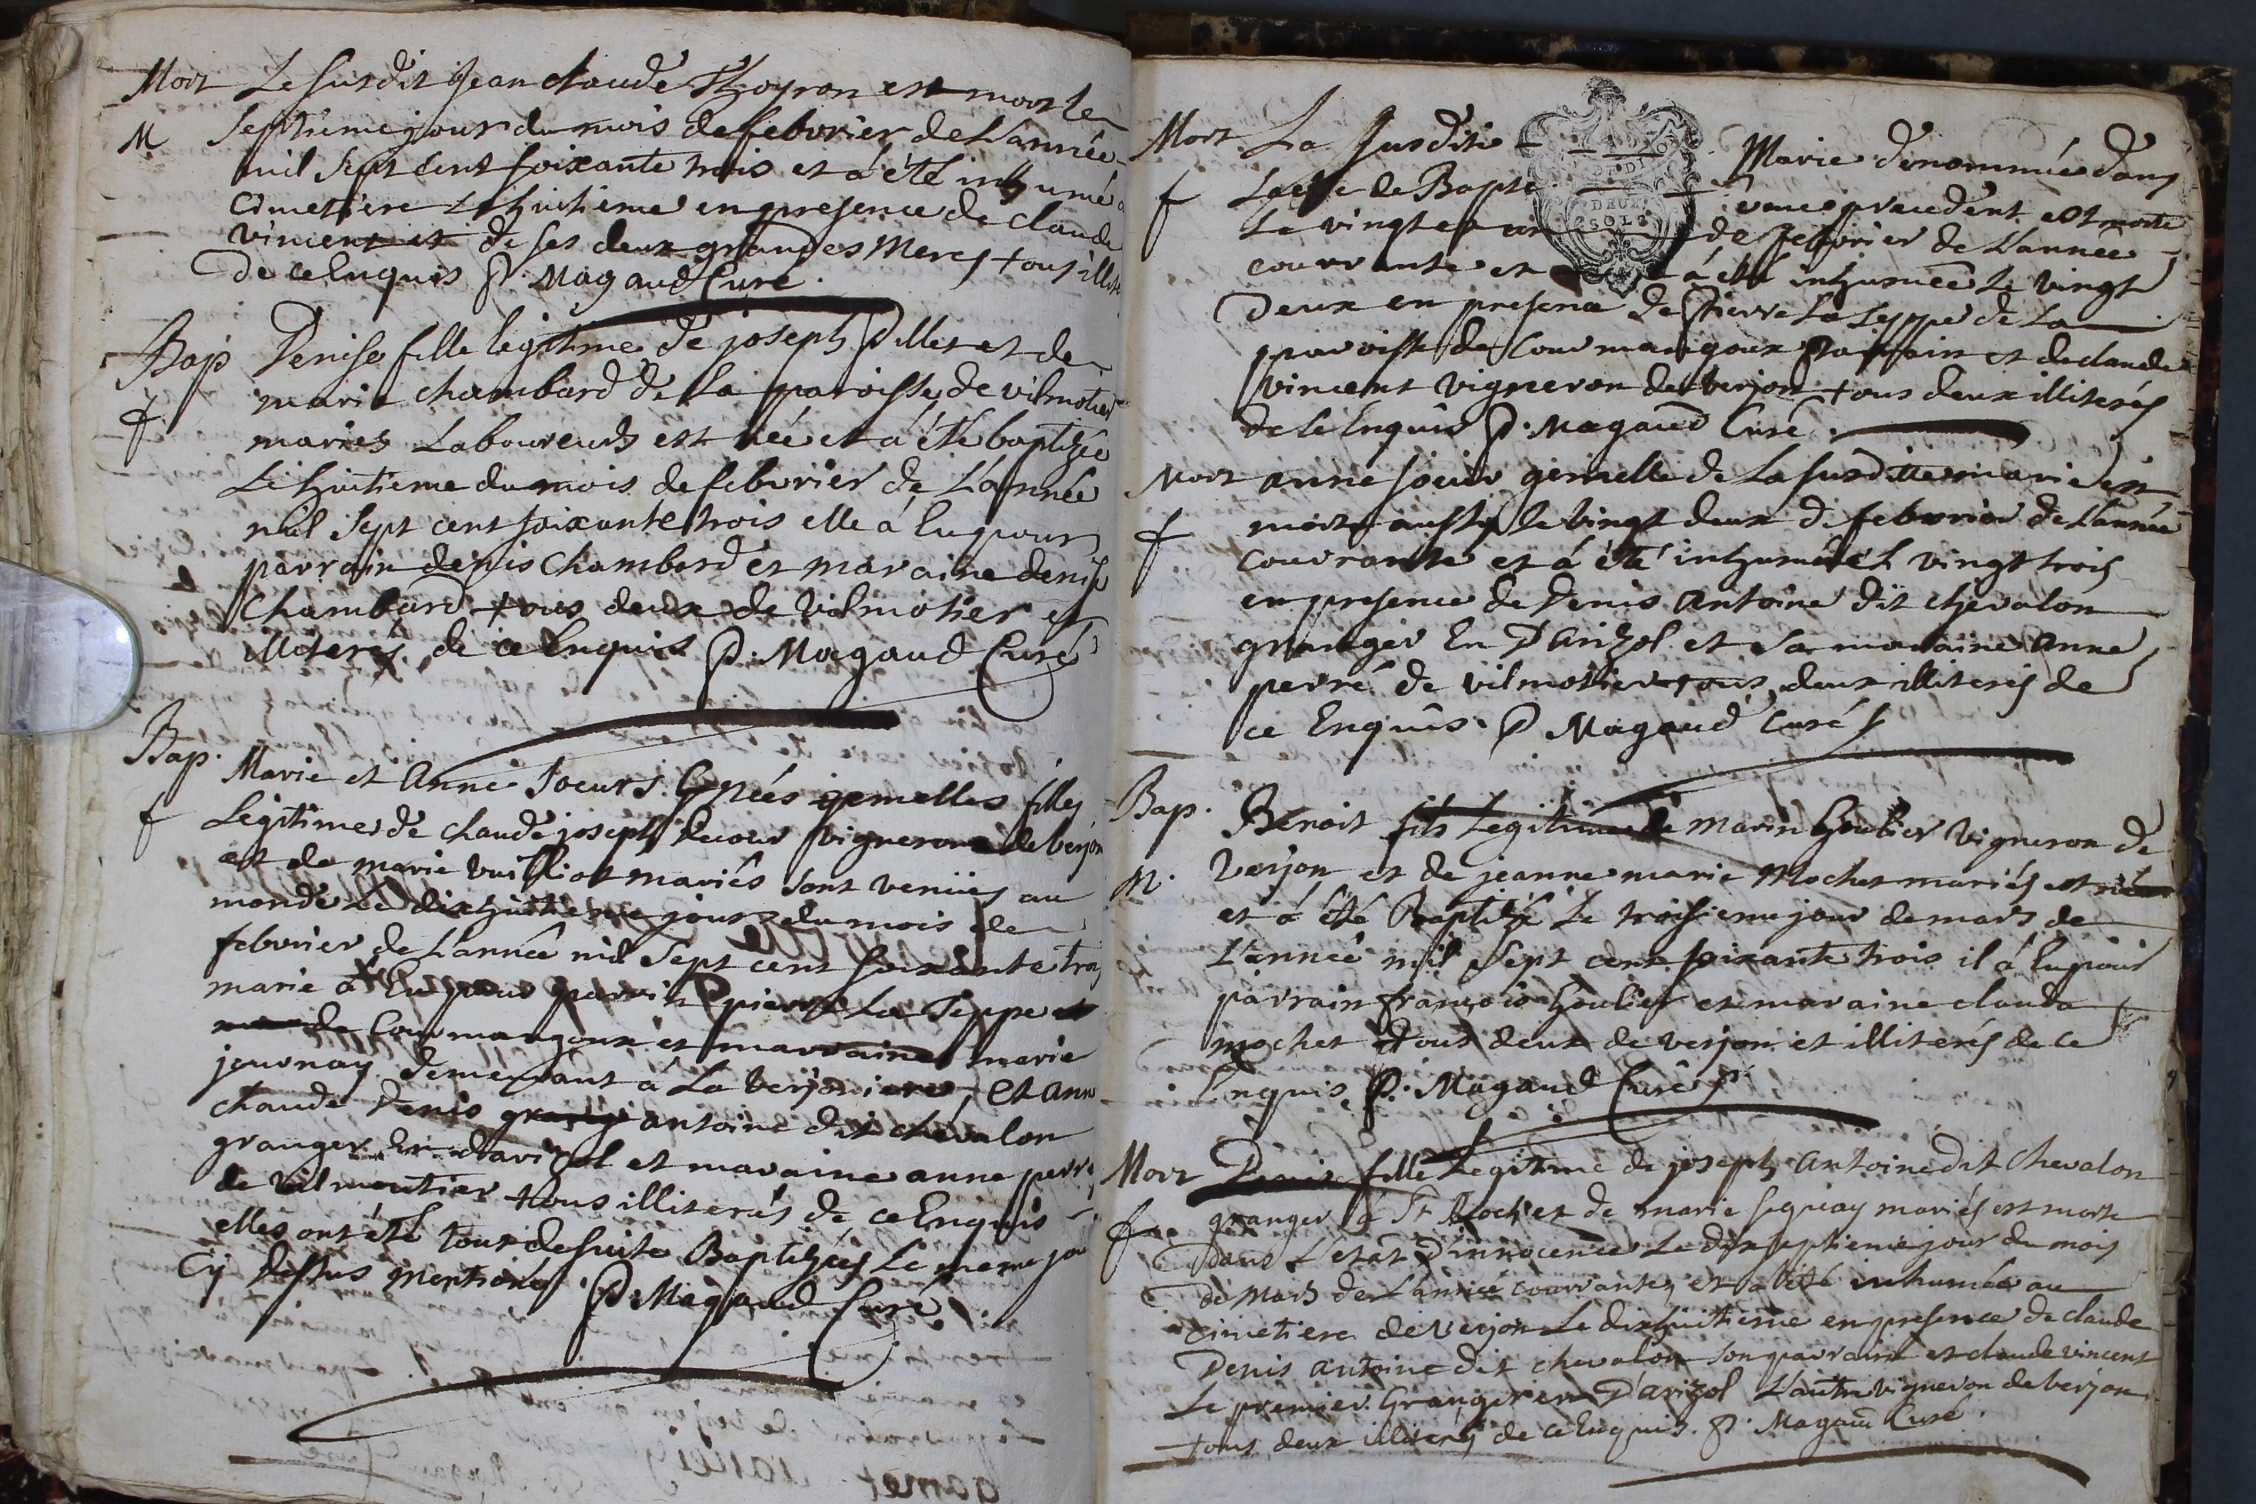 Mort Le susdit jean claude Thoyron est mort le
M septieme jour du mois de febvrier de L'année
mil sept cent soixante trois et a été inhumé
cimetiere Le huitieme en presence de claude
vincent et de ses deux grandes Meres tous illit
de ce Enquis P. Magaud Curé.
Bap Denise fille legitime de joseph Pillet et de
f marie chambard de la paroisse de vilmotier
mariés Laboureurs est née et a été baptizée
Le huitieme du mois de febvrier de L'année
mil sept cent soixante trois elle a Eu pour
parrain denis Chambard et maraine denise
Chambard tous deux de vilmotier et
illiterés de ce Enquis P. Magaud Curé
Bap. Marie et Anne soeurs gemelles filles
f Legitimes de claude joseph vigneron de verjon
et de marie vuilliot mariés sont venües au
monde le dixhuitieme jour du mois de
febvrier de L'année mil sept cent soixante trois
marie a Eu pour parrin pierre La Teppe et
de Courmangoux et marraine marie
journay demeurant á La verjoniere, Et anne
claude Denis antoine dit chevalon
granger En d'arizol et maraine anne perré
de vilmoutier tous illiterés de ce Enquis
elles ont été tout de suite Baptizées Le meme jour
Cy dessus mentioné P. Magaud Curé
Mort La susditte Marie denommée dans
f L'acte de Bapte precedent est morte
Le vingt et un de febvrier de L'année
courrante et a été inhumée Le vingt
Deux en presence de Pierre La Teppe de La
paroisse de Courmangoux Parrain et de claude
vincent vigneron de verjon tous deux illiterés
de Ce Enquis P. Magaud Curé.
Mort anne soeur gemelle de La susditte marie est
f morte aussy le vingt deux de febvrier de L'année
Courrante et a été inhumée Le vingt trois
en presence de Denis Antoine dit chevalon
granger En D'arizol et sa maraine anne
perré de vilmotier tous deux illiterés de
ce Enquis P Magaud Curé
Bap. Benoit fils Legitime de marin Goulier vigneron de
M. verjon et de jeanne marie Mochet mariés est né
et a été Baptizé Le troisieme jour de mars de
L'année mil sept cent soixante trois il a Eu pour
parrain françois Goulier et maraine clauda
mochet tous deux de verjon et illiterés de ce
Enquis P. Magaud Curé
Mort Denise fille Legitime de joseph Antoine dit Chevalon
f granger a St Roch et de marie seguay mariés est morte
dans L'etat D'innocence Le dixseptieme jour du mois
de Mars de L'année courrante, et a été inhumée au
cimetiere de verjon Le dixhuitieme en presence de claude
Denis antoine dit chevalon son parrain et claude vincent
Le premier Granger en D'arizol L'autre vigneron de verjon
tous deux illiterés de ce Enquis. P. Magaud Curé.